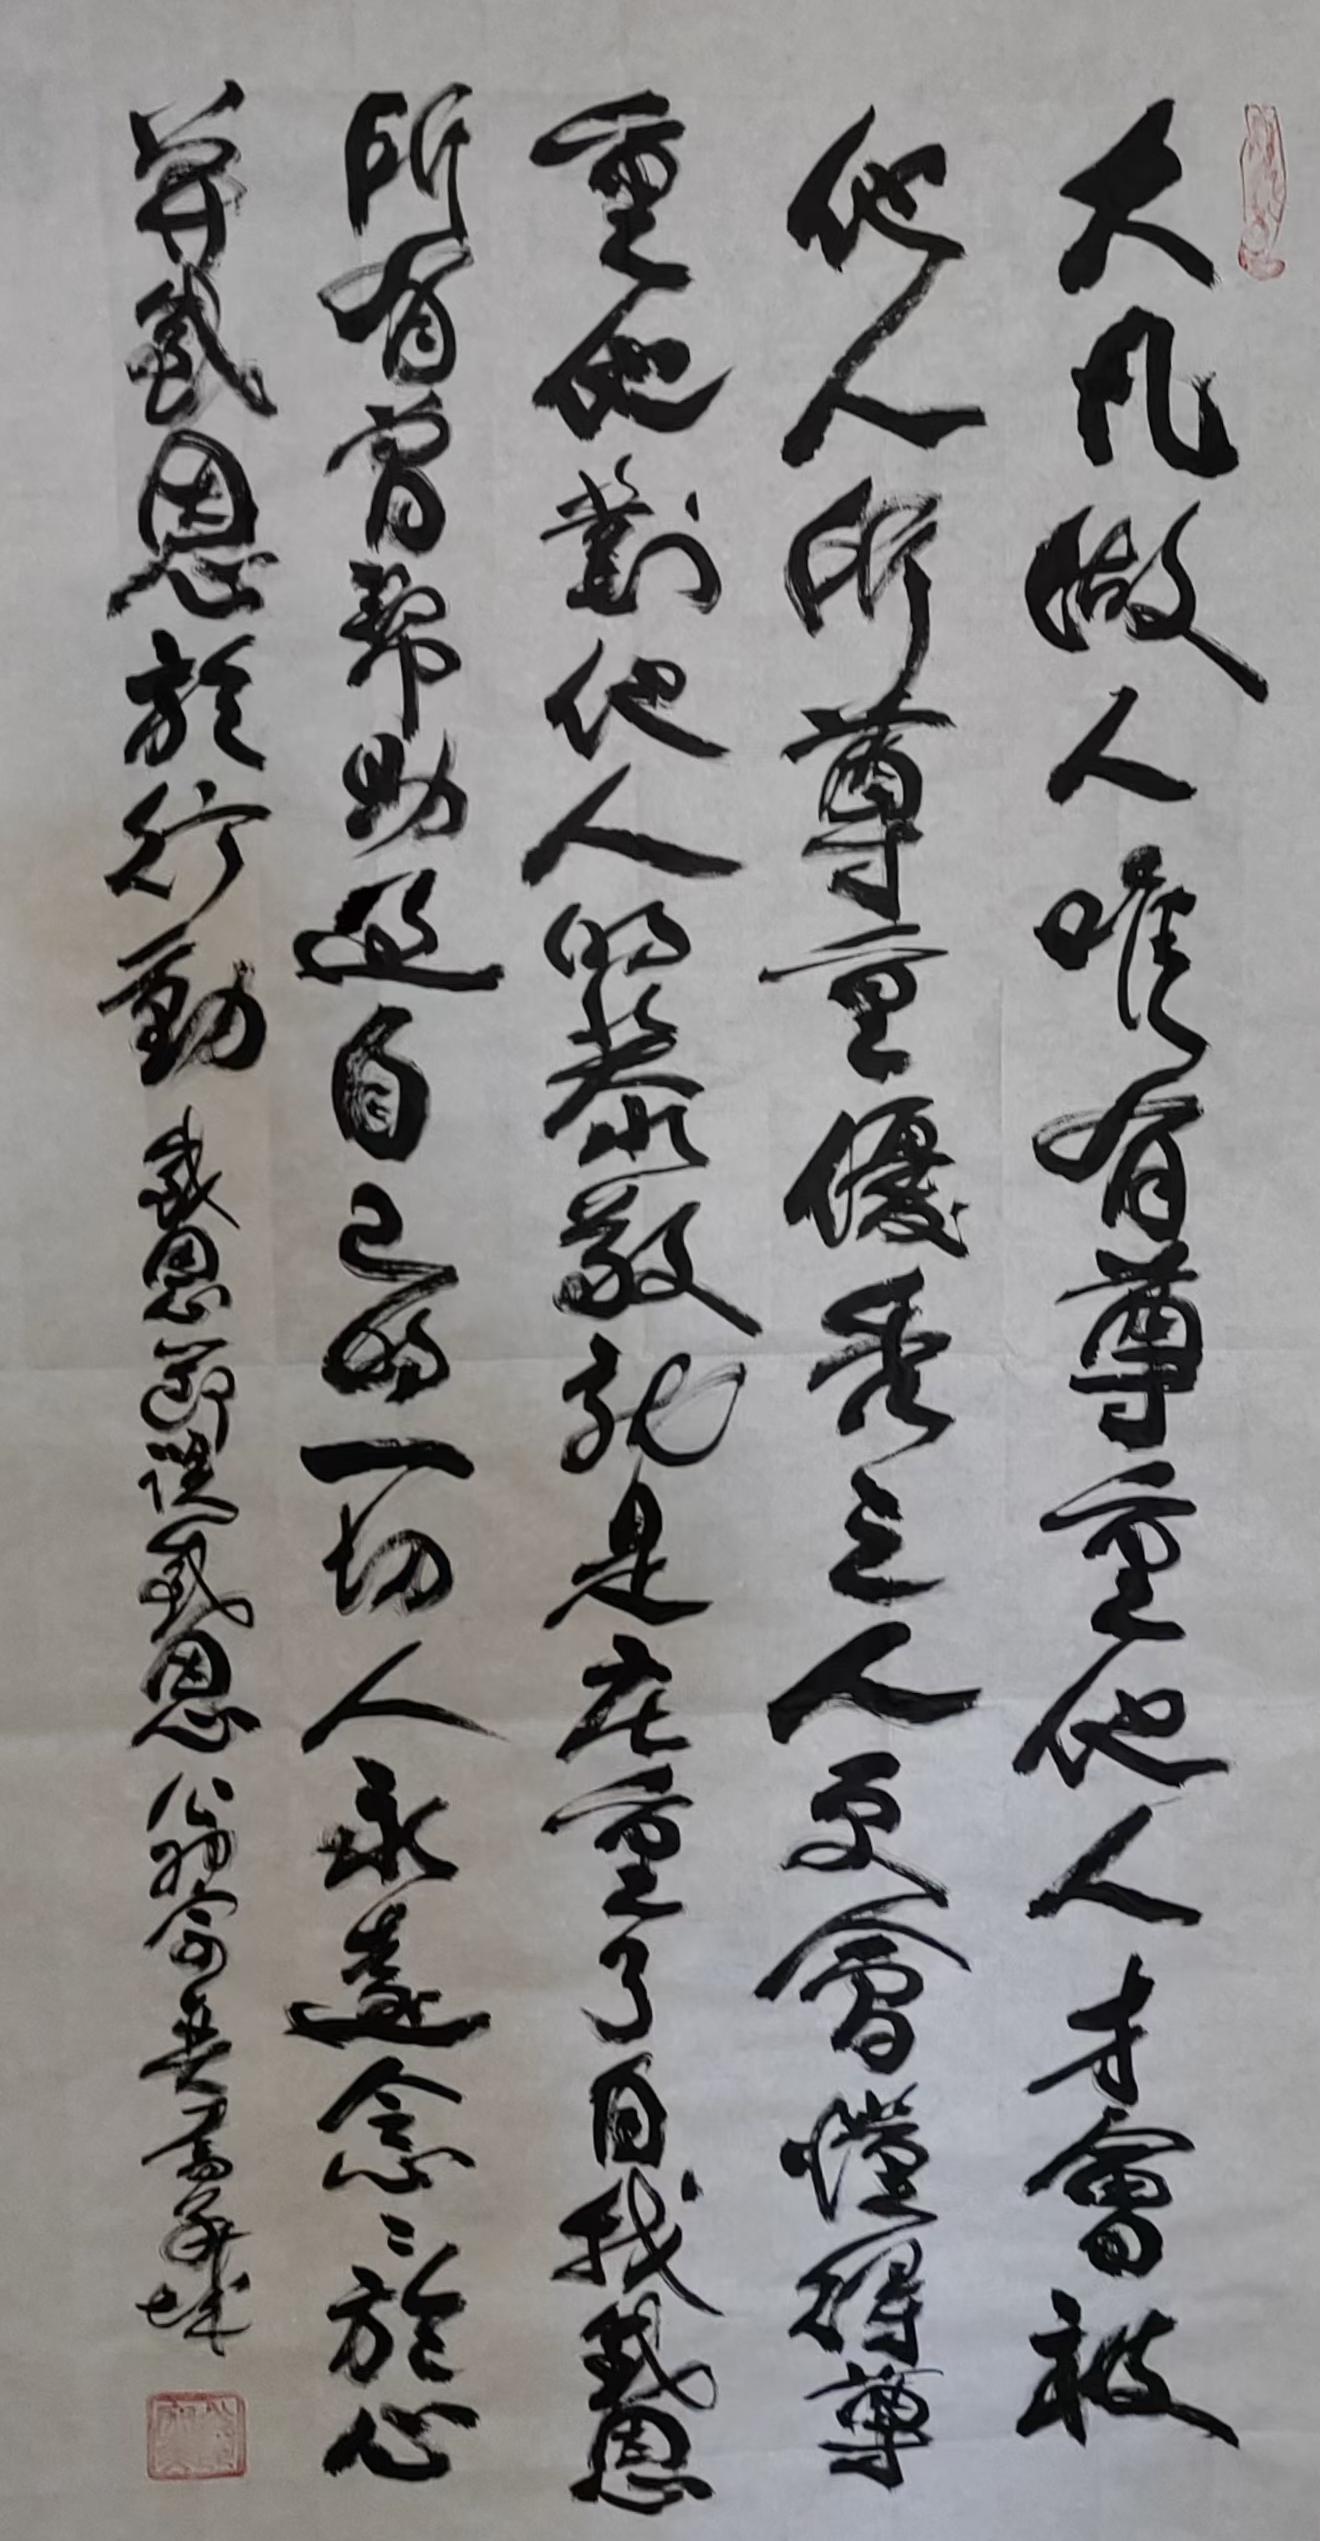 大凡做人唯有尊重他人才會被
他人所尊重優秀之人更會懂得尊
重他對他人的恭敬就是莊重了自我感恩
所有曾幫助過自己的一切人永遠念念於心
并感恩於行動 感恩節談感恩